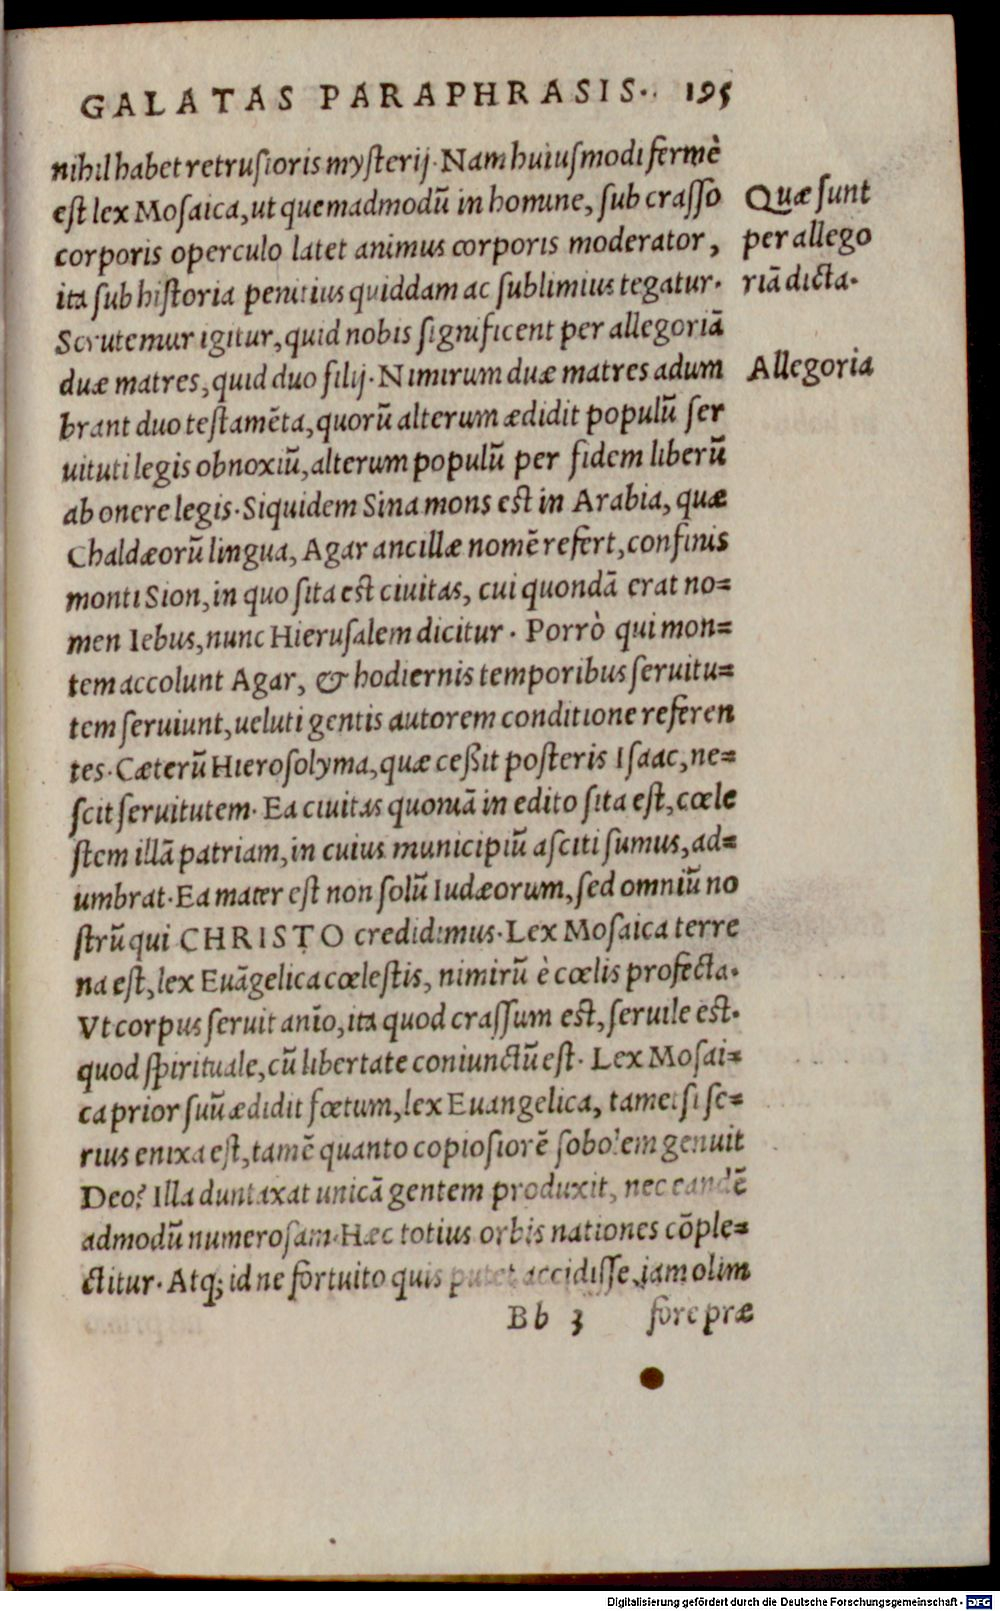 GALATAS PARAPHRASIS. 195
nihil habet retrusioris mysterij. Nam huiusmodi fermè
est lex Mosaica, ut quemadmodũ in homine, sub crasso
corporis operculo latet animus corporis moderator,
ita sub historia penitius quiddam ac sublimius tegatur.
Scrutemur igitur, quid nobis significent per allegoriã
duæ matres, quid duo filij. Nimirum duæ matres adum
brant duo testamẽta, quorũ alterum ædidit populũ ser
uituti legis obnoxiũ, alterum populũ per fidem liberũ
ab onere legis. Siquidem Sina mons est in Arabia, quæ
Chaldæorũ lingua, Agar ancillæ nomẽ refert, confinis
monti Sion, in quo sita est ciuitas, cui quondã erat no=
men Iebus, nunc Hierusalem dicitur. Porrò qui mon=
tem accolunt Agar, & hodiernis temporibus seruitu=
tem seruiunt, ueluti gentis autorem conditione referen
tes. Cæterũ Hierosolyma, quæ ceßit posteris Isaac, ne=
scit seruitutem. Ea ciuitas quoniã in edito sita est, cœle
stem illã patriam, in cuius municipiũ asciti sumus, ad=
umbrat. Ea mater est non solũ Iudæorum, sed omniũ no
strũ qui CHRISTO credidimus. Lex Mosaica terre
na est, lex Euãgelica cœlestis, nimirũ è cœlis profecta.
Vt corpus seruit anĩo, ita quod crassum est, seruile est.
quod spirituale, cũ libertate coniunctũ est. Lex Mosai=
ca prior suũ ædidit fœtum, lex Euangelica, tametsi se=
rius enixa est, tamẽ quanto copiosiorẽ sobolem genuit
Deo? Illa duntaxat unicã gentem produxit, nec eandẽ
admodũ numerosam. Hæc totius orbis nationes cõple=
ctitur. Atq; id ne fortuito quis putet accidisse, iam olim
Bb 3 fore præ
Quæ sunt
per allego
riã dicta.
Allegoria
Digitalisierung gefördert durch die Deutsche Forschungsgemeinschaft - DFG